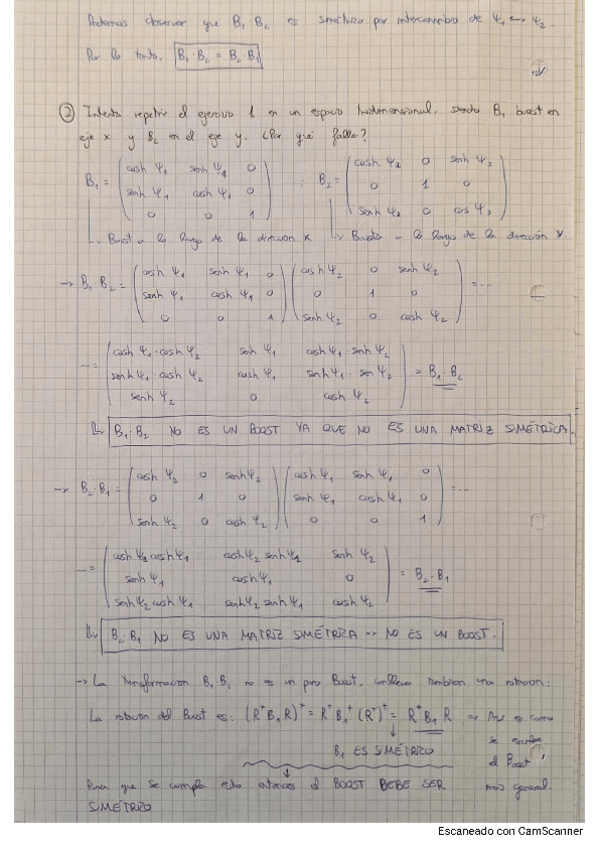 Podemos observar que B₁·B₂ es simétrico por intercambio de Ψ₁ ↔ Ψ₂.
Por lo tanto, B₁·B₂ = B₂·B₁
② Intenta repetir el ejercicio 1 en un espacio tridimensional, siendo B₁ boost en
eje x y B₂ en el eje y. ¿Por qué falla?
B₁ = ( cosh Ψ₁ senh Ψ₁ 0 ; B₂ = ( cosh Ψ₂ 0 senh Ψ₂
senh Ψ₁ cosh Ψ₁ 0 0 1 0
0 0 1 ) senh Ψ₂ 0 cos Ψ₂ )
↳ Boost a lo largo de la dirección x ↳ Boost a lo largo de la dirección y.
→ B₁·B₂ = ( cosh Ψ₁ senh Ψ₁ 0 ( cosh Ψ₂ 0 senh Ψ₂ = ...
senh Ψ₁ cosh Ψ₁ 0 0 1 0
0 0 1 ) senh Ψ₂ 0 cosh Ψ₂ )
... = ( cosh Ψ₁·cosh Ψ₂ senh Ψ₁ cosh Ψ₁·senh Ψ₂
senh Ψ₁·cosh Ψ₂ cosh Ψ₁ senh Ψ₁·sen Ψ₂ = B₁·B₂
senh Ψ₂ 0 cosh Ψ₂ )
↳ B₁·B₂ NO ES UN BOOST YA QUE NO ES UNA MATRIZ SIMÉTRICA.
→ B₂·B₁ = ( cosh Ψ₂ 0 senh Ψ₂ ( cosh Ψ₁ senh Ψ₁ 0 = ...
0 1 0 senh Ψ₁ cosh Ψ₁ 0
senh Ψ₂ 0 cosh Ψ₂ ) 0 0 1 )
... = ( cosh Ψ₂ cosh Ψ₁ cosh Ψ₂ senh Ψ₁ senh Ψ₂
senh Ψ₁ cosh Ψ₁ 0 = B₂·B₁
senh Ψ₂ cosh Ψ₁ senh Ψ₂ senh Ψ₁ cosh Ψ₂ )
↳ B₂·B₁ NO ES UNA MATRIZ SIMÉTRICA → NO ES UN BOOST.
→ La transformación B₁·B₂ no es un puro Boost, conlleva también una rotación:
La rotación del Boost es: (R⁺B₁R)⁺ = R⁺B₁⁺(R⁺)⁺ = R⁺B₁R ⇒ Así es como
se escribe
B₁ ES SIMÉTRICO
el Boost
Para que se cumpla esto entonces el BOOST DEBE SER
más general.
SIMÉTRICO
Escaneado con CamScanner